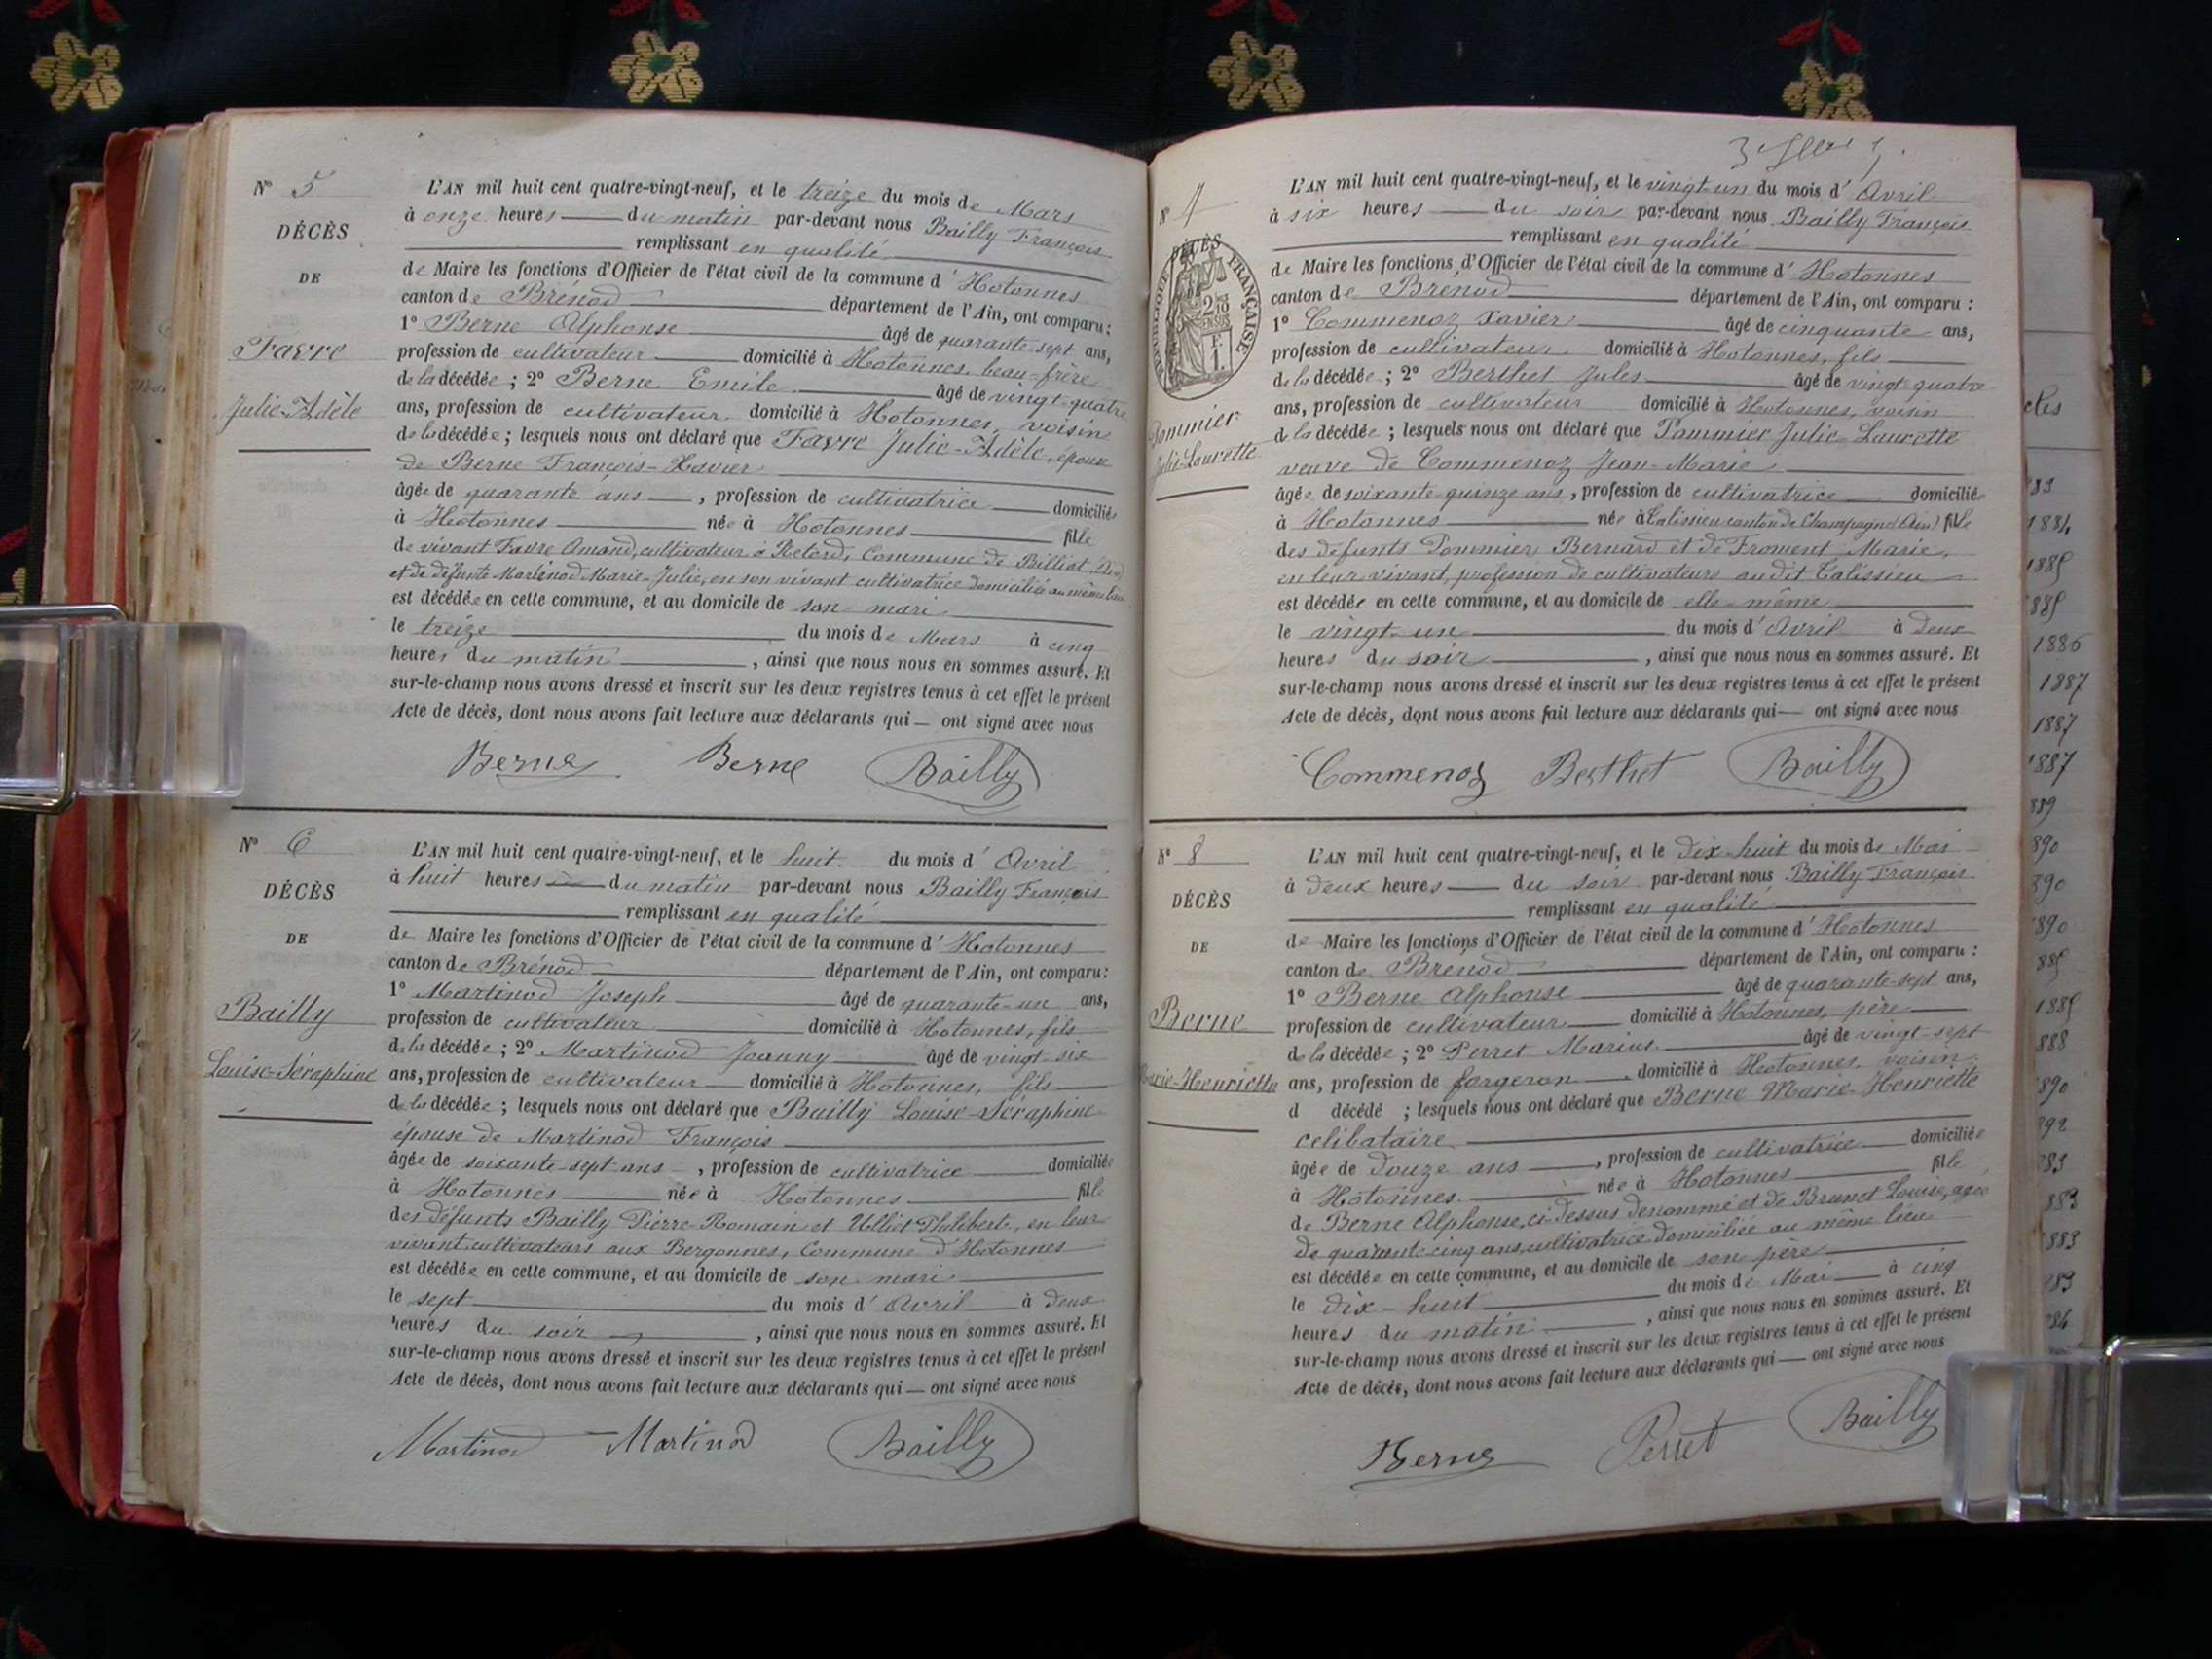 N° 5
DÉCÈS
DE
Favre
Julie-Adèle
L'AN mil huit cent quatre-vingt-neuf, et le treize du mois de Mars
à onze heures du matin par-devant nous Bailly François
remplissant en qualité
de Maire les fonctions d'Officier de l'état civil de la commune d'Hotonnes
canton de Brénod département de l'Ain, ont comparu :
1° Berne Alphonse âgé de quarante-sept ans,
profession de cultivateur domicilié à Hotonnes, beau-frère
de la décédée ; 2° Berne Emile âgé de vingt-quatre
ans, profession de cultivateur domicilié à Hotonnes, voisin
de la décédée ; lesquels nous ont déclaré que Favre Julie-Adèle, épouse
de Berne François-Xavier
âgée de quarante ans, profession de cultivatrice domiciliée
à Hotonnes née à Hotonnes fille
de vivant Favre Amand, cultivateur à Retord, Commune de Billiat (Ain)
et de défunte Martinod Marie-Julie, en son vivant cultivatrice domiciliée au même lieu
est décédée en cette commune, et au domicile de son mari
le treize du mois de Mars à cinq
heures du matin, ainsi que nous nous en sommes assuré. Et
sur-le-champ nous avons dressé et inscrit sur les deux registres tenus à cet effet le présent
Acte de décès, dont nous avons fait lecture aux déclarants qui — ont signé avec nous
Berne Berne Bailly
N° 6
DÉCÈS
DE
Bailly
Louise-Séraphine
L'AN mil huit cent quatre-vingt-neuf, et le huit du mois d'Avril
à huit heures du matin par-devant nous Bailly François
remplissant en qualité
de Maire les fonctions d'Officier de l'état civil de la commune d'Hotonnes
canton de Brénod département de l'Ain, ont comparu :
1° Martinod Joseph âgé de quarante-un ans,
profession de cultivateur domicilié à Hotonnes, fils
de la décédée ; 2° Martinod Joanny âgé de vingt-six
ans, profession de cultivateur domicilié à Hotonnes, fils
de la décédée ; lesquels nous ont déclaré que Bailly Louise-Séraphine
épouse de Martinod François
âgée de soixante-sept ans, profession de cultivatrice domiciliée
à Hotonnes née à Hotonnes fille
des défunts Bailly Pierre-Romain et Philiberte, en leur
vivant cultivateurs aux Bergonnes, Commune d'Hotonnes
est décédée en cette commune, et au domicile de son mari
le sept du mois d'Avril à deux
heures du soir, ainsi que nous nous en sommes assuré. Et
sur-le-champ nous avons dressé et inscrit sur les deux registres tenus à cet effet le présent
Acte de décès, dont nous avons fait lecture aux déclarants qui — ont signé avec nous
Martinod Martinod Bailly
N° 7
DÉCÈS
DE
RÉPUBLIQUE FRANÇAISE
Pommier
Julie-Laurette
L'AN mil huit cent quatre-vingt-neuf, et le vingt-un du mois d'Avril
à six heures du soir par-devant nous Bailly François
remplissant en qualité
de Maire les fonctions d'Officier de l'état civil de la commune d'Hotonnes
canton de Brenod département de l'Ain, ont comparu :
1° Commenoz Xavier âgé de cinquante ans,
profession de cultivateur domicilié à Hotonnes, fils
de la décédée ; 2° Berthet Jules âgé de vingt-quatre
ans, profession de cultivateur domicilié à Hotonnes, voisin
de la décédée ; lesquels nous ont déclaré que Pommier Julie-Laurette
veuve de Commenoz Jean-Marie
âgée de soixante-quinze ans, profession de cultivatrice domiciliée
à Hotonnes née à Talissieu canton de Champagne (Ain) fille
des défunts Pommier Bernard et de Froment Marie,
en leur vivant, profession de cultivateurs au dit Talissieu
est décédée en cette commune, et au domicile de elle-même
le vingt-un du mois d'Avril à deux
heures du soir, ainsi que nous nous en sommes assuré. Et
sur-le-champ nous avons dressé et inscrit sur les deux registres tenus à cet effet le présent
Acte de décès, dont nous avons fait lecture aux déclarants qui — ont signé avec nous
Commenoz Berthet Bailly
N° 8
DÉCÈS
DE
Berne
Marie-Henriette
L'AN mil huit cent quatre-vingt-neuf, et le dix-huit du mois de Mai
à deux heures du soir par-devant nous Bailly François
remplissant en qualité
de Maire les fonctions d'Officier de l'état civil de la commune d'Hotonnes
canton de Brenod département de l'Ain, ont comparu :
1° Berne Alphonse âgé de quarante-sept ans,
profession de cultivateur domicilié à Hotonnes, père
de la décédée ; 2° Perret Marius âgé de vingt-sept
ans, profession de forgeron domicilié à Hotonnes, voisin
d décédé ; lesquels nous ont déclaré que Berne Marie-Henriette
celibataire
âgée de douze ans, profession de cultivatrice domiciliée
à Hotonnes née à Hotonnes fille
de Berne Alphonse, ci-dessus dénommé et de Brunet Louise, agée
de quarante cinq ans, cultivatrice domiciliée au même lieu
est décédée en cette commune, et au domicile de son père
le dix-huit du mois de Mai à cinq
heures du matin, ainsi que nous nous en sommes assuré. Et
sur-le-champ nous avons dressé et inscrit sur les deux registres tenus à cet effet le présent
Acte de décès, dont nous avons fait lecture aux déclarants qui — ont signé avec nous
Berne Perret Bailly
1884
1885
885
1886
1887
1887
1887
889
890
890
890
885
1885
888
890
892
883
883
883